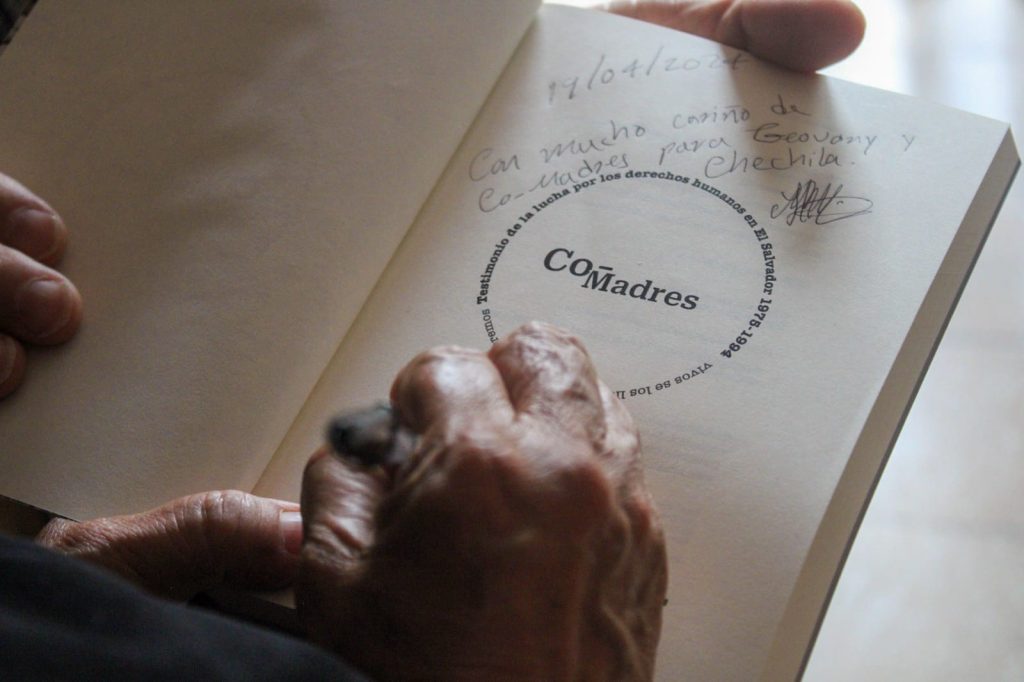 19/04/2024
Con mucho cariño de
Co-Madres para Geovany y
Chechila.
Testimonio de la lucha por los derechos humanos en El Salvador 1975-1994
Co-Madres
vivos se los
remos